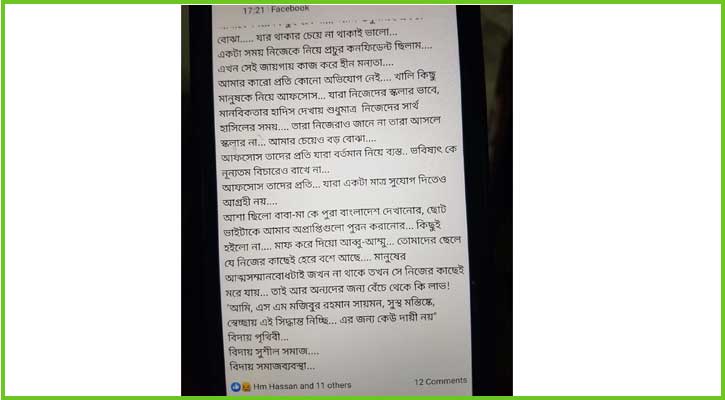 17:21 | Facebook
বোঝা..... যার থাকার চেয়ে না থাকাই ভালো...
একটা সময় নিজেকে নিয়ে প্রচুর কনফিডেন্ট ছিলাম....
এখন সেই জায়গায় কাজ করে হীন মন্যতা....
আমার কারো প্রতি কোনো অভিযোগ নেই.... খালি কিছু
মানুষকে নিয়ে আফসোস... যারা নিজেদের স্কলার ভাবে,
মানবিকতার হাদিস দেখায় শুধুমাত্র নিজেদের সার্থ
হাসিলের সময়.... তারা নিজেরাও জানে না তারা আসলে
স্কলার না... আমার চেয়েও বড় বোঝা....
আফসোস তাদের প্রতি যারা বর্তমান নিয়ে ব্যস্ত.. ভবিষ্যৎ কে
নূন্যতম বিচারেও রাখে না...
আফসোস তাদের প্রতি... যারা একটা মাত্র সুযোগ দিতেও
আগ্রহী নয়....
আশা ছিলো বাবা-মা কে পুরা বাংলাদেশ দেখানোর, ছোট
ভাইটাকে আমার অপ্রাপ্তিগুলো পুরন করানোর... কিছুই
হইলো না.... মাফ করে দিয়ো আব্বু-আম্মু... তোমাদের ছেলে
যে নিজের কাছেই হেরে বশে আছে.... মানুষের
আত্মসম্মানবোধটাই জখন না থাকে তখন সে নিজের কাছেই
মরে যায়... তাই আর অন্যদের জন্য বেঁচে থেকে কি লাভ!
"আমি, এস এম মজিবুর রহমান সায়মন, সুস্থ মস্তিষ্কে,
স্বেচ্ছায় এই সিদ্ধান্ত নিচ্ছি... এর জন্য কেউ দায়ী নয়"
বিদায় পৃথিবী...
বিদায় সুশীল সমাজ....
বিদায় সমাজব্যবস্থা...
Hm Hassan and 11 others 12 Comments